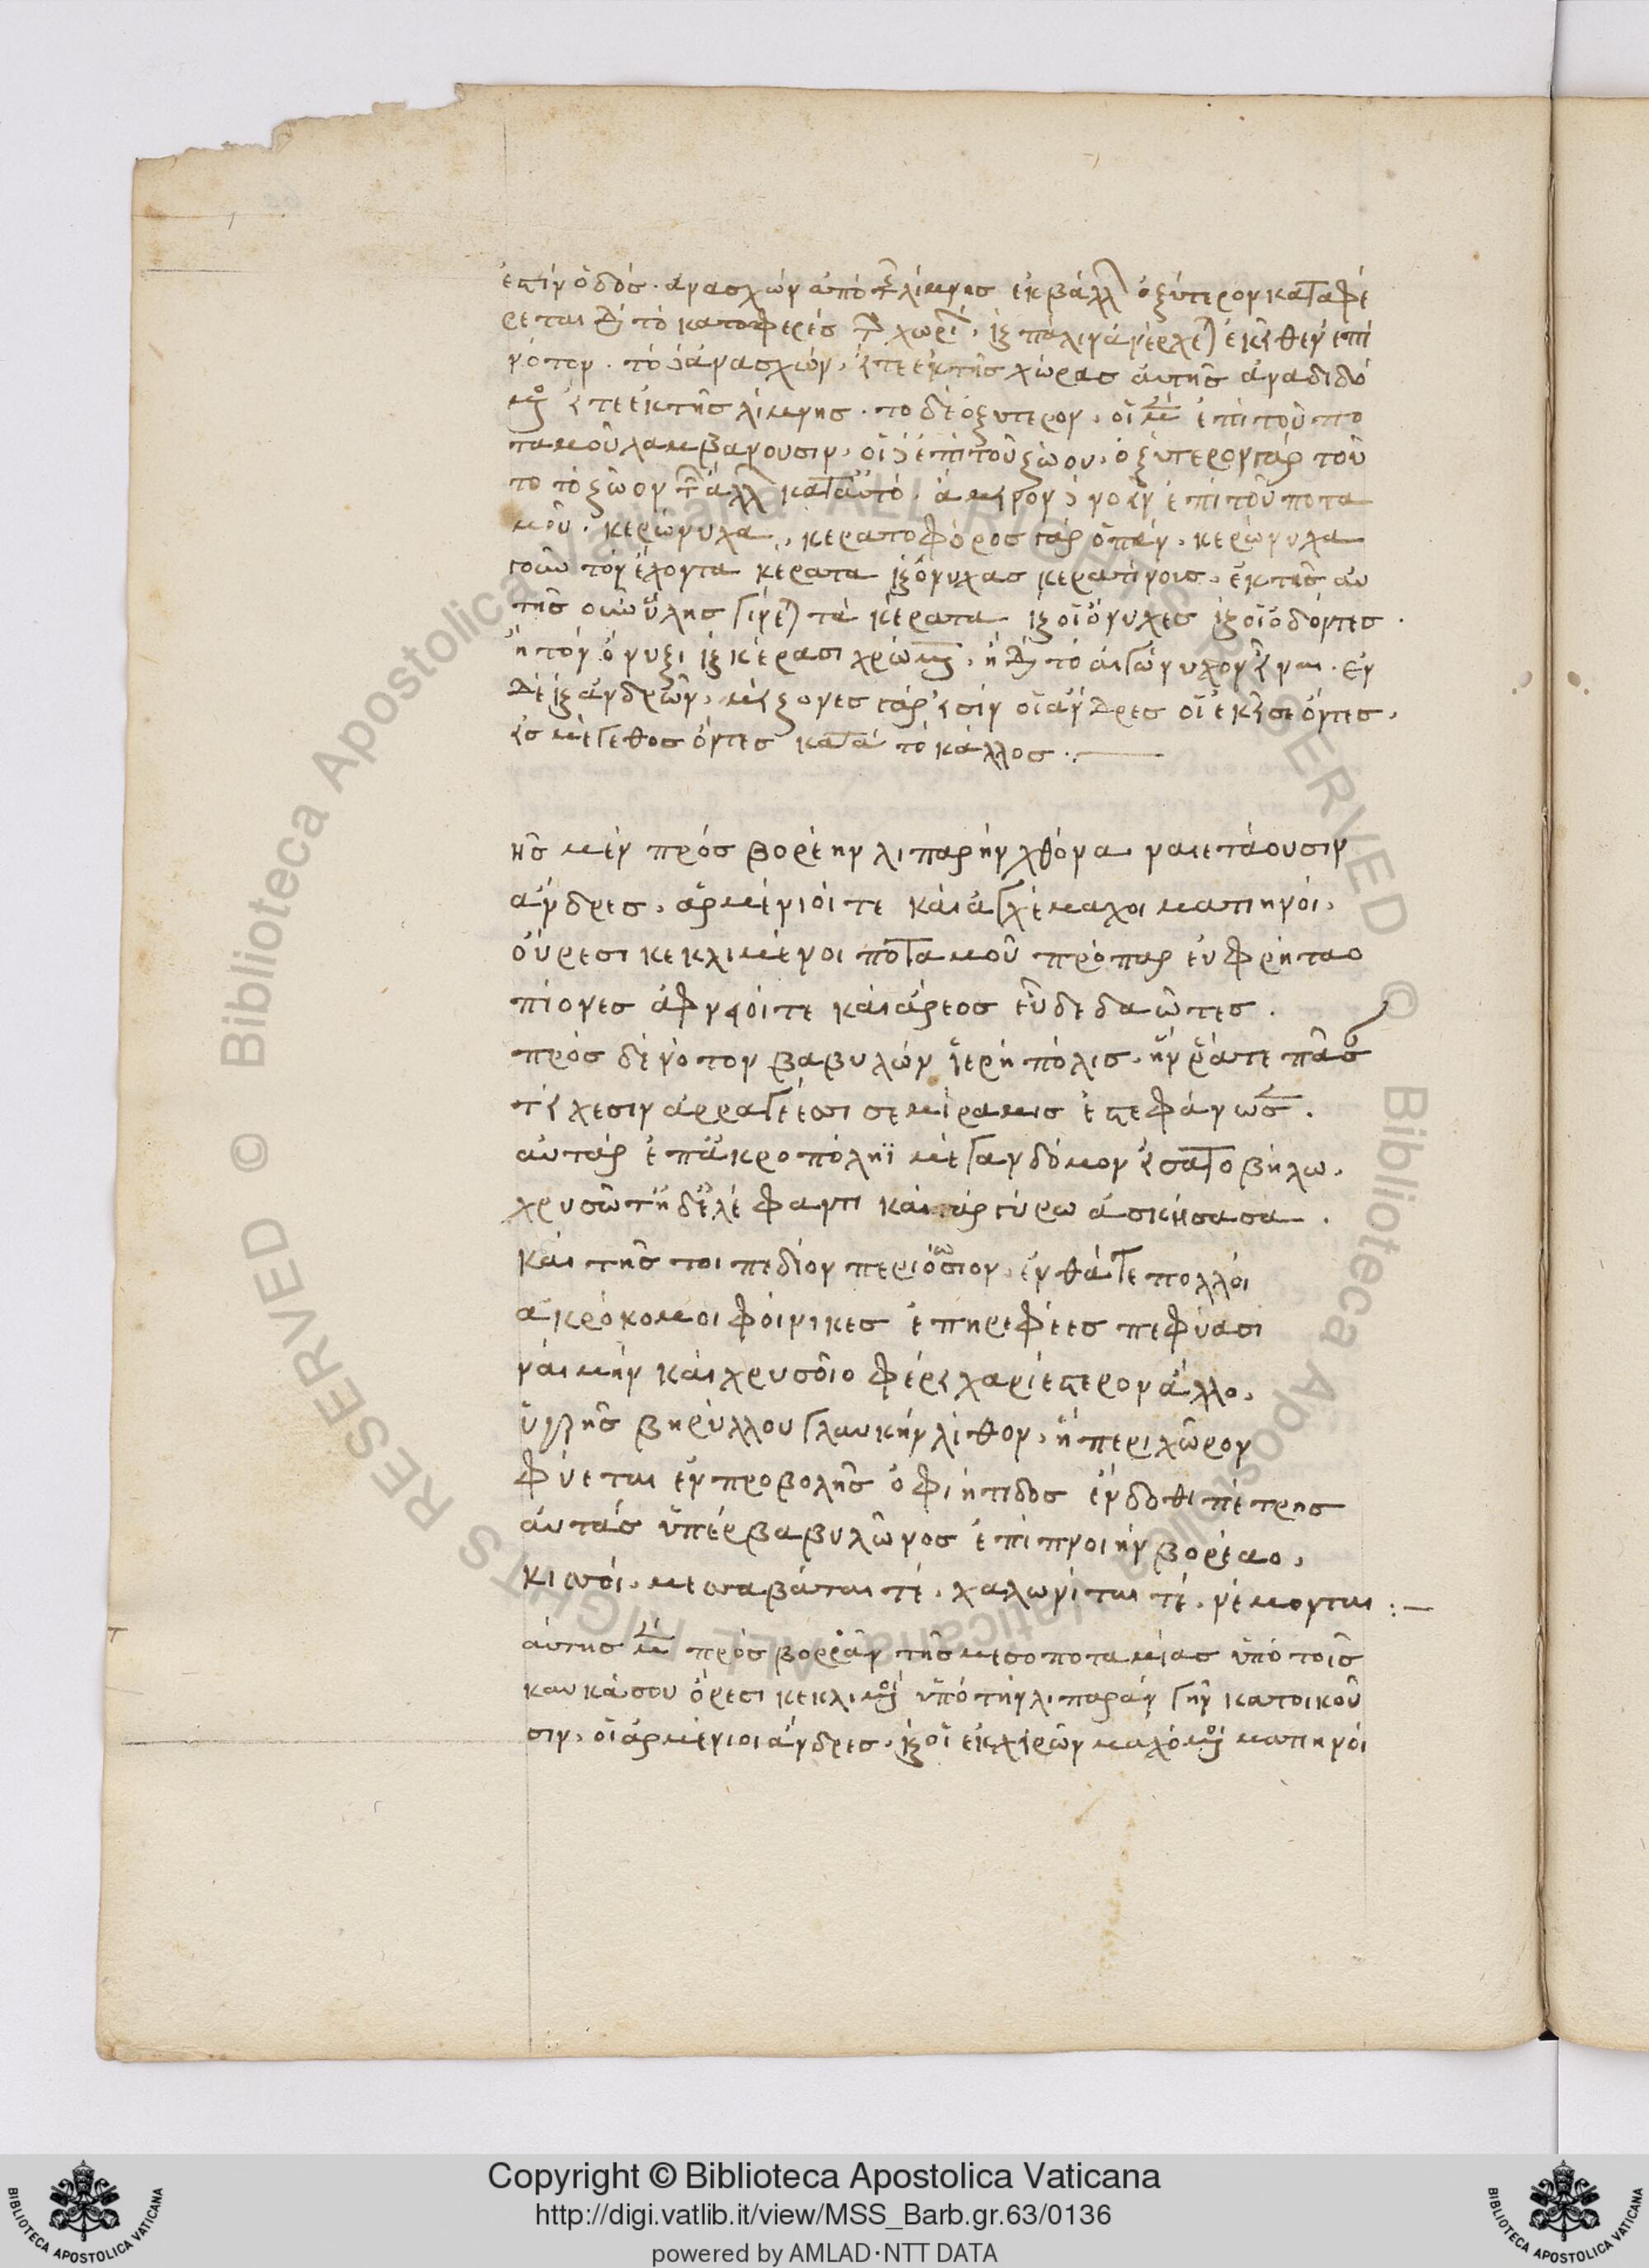 ἐστὶν ὁδός. ἀνασχὼν ἀπὸ τῆς λίμνης ἐκβάλλει ὀξύτερον καταφέ
ρεται διὰ τὸ κατωφερὲς τοῦ χωρίου, καὶ πάλιν ἀνέρχεται ἐκεῖθεν ἐπὶ
νότον. τὸ δὲ ἀνασχὼν, εἴτε ἐκ τῆς χώρας αὐτῆς ἀναδιδό
μενος εἴτε ἐκ τῆς λίμνης. το δὲ ὀξυτερον, οἱ μὲν ἐπὶ τοῦ πο
ταμοῦ λαμβανουσιν, οἱ δὲ ἐπὶ τοῦ ζώου, ὀξύτερον γὰρ τοῦ
το τὸ ζῶον τῶν ἄλλων κατ' αὐτό. ἄμεινον δὲ νοεῖν ἐπὶ τοῦ ποτα
μοῦ. κερώνυχα, κερατοφόρος γὰρ ὁ πάν. κερώνυχα
γοῦν τὸν ἔχοντα κέρατα καὶ ὄνυχας κερατίνους, ἐκ τῆς αὐ
τῆς οὖν ὕλης γίνεται τὰ κέρατα καὶ οἱ ὄνυχες καὶ οἱ ὀδόντες.
ἢ τὸν ὄνυξι καὶ κέρασι χρώμενον, ἢ διὰ τὸ αἰγώνυχον εἶναι. ἐν
δὲ καὶ ἀνδρῶν, μείζονες γάρ εἰσιν οἱ ἄνδρες οἱ ἐκεῖσε ὄντες,
εἰς μέγεθος ὄντες κατὰ τὸ κάλλος.
ἧς μὲν πρὸς βορέην λιπαρὴν χθόνα ναιετάουσιν
ἄνδρες, ἀρμένιοί τε καὶ ἀγχέμαχοι ματιηνοί,
οὔρεσι κεκλιμένοι ποταμοῦ πρόπαρ εὐφρήταο
πίονες ἀφνειοί τε καὶ ἄρεος εὖ δεδαῶτες.
πρὸς δὲ νότον βαβυλὼν ἱερὴ πόλις, ἥν ῥά τε πᾶσαν
τείχεσιν ἀρραγέεσσι σεμίραμις ἐστεφάνωσεν.
αὐτὰρ ἐπ' ἀκροπόληϊ μέγαν δόμον εἵσατο βήλῳ,
χρυσῷ τ' ἠδ' ἐλέφαντι καὶ ἀργύρῳ ἀσκήσασα.
καὶ τῆς τοι πεδίον περιώσιον, ἔνθά γε πολλοὶ
ἀκρόκομοι φοίνικες ἐπηρεφέες πεφύασι
ναὶ μὴν καὶ χρυσοῖο φέρει χαριέστερον ἄλλο,
ὑγρῆς βηρύλλου γλαυκὴν λίθον, ἣ περὶ χῶρον
φύεται ἐν προβολῆς ὀφιήτιδος ἔνδοθι πέτρης
αὐτὰς ὑπὲρ βαβυλῶνος ἐπὶ πνοιὴν βορέαο,
κισσοί, μεσσαβάται τέ, χαλωνίται τέ, νέμονται:
αὐτῆς μὲν πρὸς βορρᾶν τῆς μεσοποταμίας ὑπὸ τοῖς
καυκάσου ὄρεσι κεκλιμένοι ὑπὸ τὴν λιπαρὰν γῆν κατοικοῦ
σιν, οἱ ἀρμένιοι ἄνδρες, καὶ οἱ ἐκ χειρῶν μαχόμενοι ματιηνοί
Copyright © Biblioteca Apostolica Vaticana
http://digi.vatlib.it/view/MSS_Barb.gr.63/0136
powered by AMLAD·NTT DATA